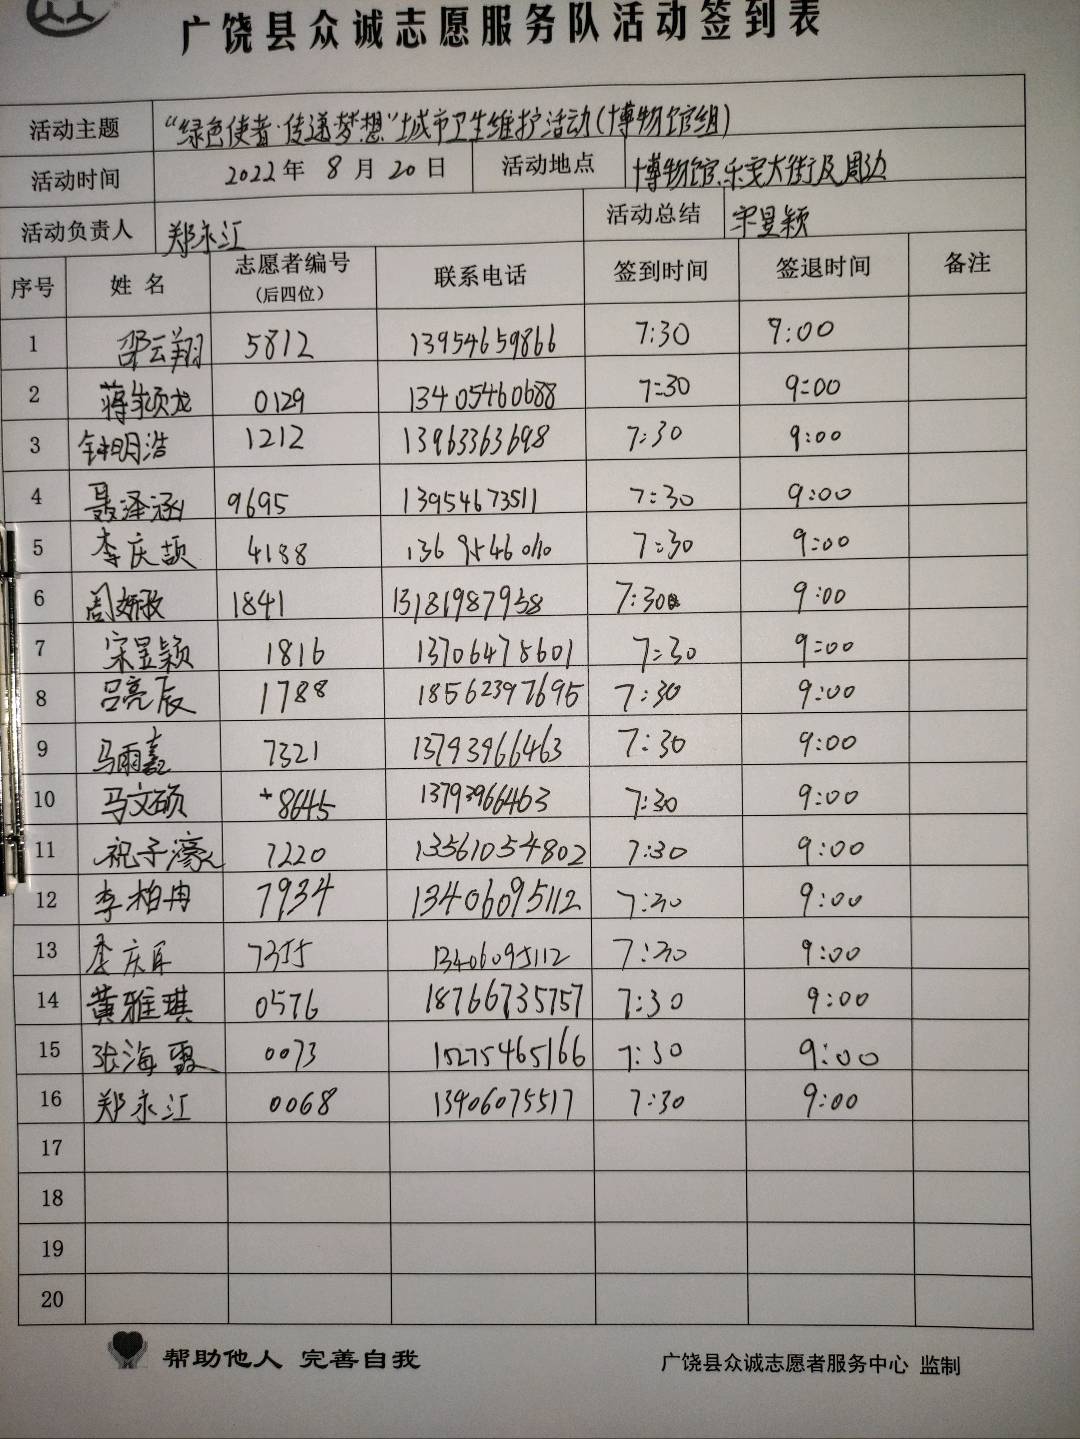 广饶县众诚志愿服务队活动签到表
活动主题 “绿色使者·传递梦想”城市卫生维护活动(博物馆组)
活动时间 2022年 8月 20日 活动地点 博物馆、乐安大街及周边
活动负责人 郑永江 活动总结 宋昱颖
序号 姓名 志愿者编号 (后四位) 联系电话 签到时间 签退时间 备注
1 邵云翔 5812 13954659866 7:30 9:00
2 蒋 龙 0129 13405460688 7:30 9:00
3 钟明浩 1212 13963363698 7:30 9:00
4 聂泽涵 9695 13954673511 7:30 9:00
5 李庆颉 4188 7:30 9:00
6 周 1841 13181987938 7:30 9:00
7 宋昱颖 1816 13706478601 7:30 9:00
8 吕亮辰 1788 18562397695 7:30 9:00
9 马雨鑫 7321 13793966463 7:30 9:00
10 马文硕 8645 13793966463 7:30 9:00
11 祝子濠 7220 13561054802 7:30 9:00
12 李柏冉 7934 13406095112 7:30 9:00
13 李庆 7355 13406095112 7:30 9:00
14 黄雅琪 0576 18766735757 7:30 9:00
15 张海霞 0073 15275465166 7:30 9:00
16 郑永江 0068 13406075517 7:30 9:00
17
18
19
20
帮助他人 完善自我 广饶县众诚志愿者服务中心 监制